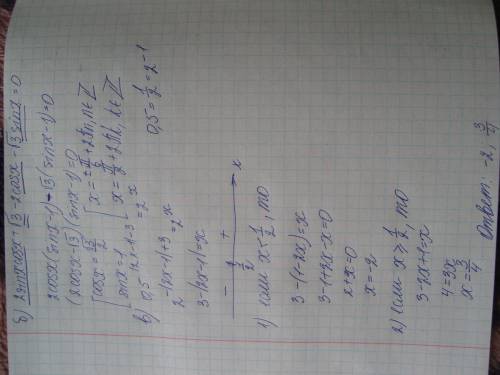 б) 2sinxcosx+√3-2cosx-√3sinx=0
2cosx(sinx-1)-√3(sinx-1)=0
(2cosx-√3)(sinx-1)=0
[cosx=√3/2 [x=±π/6+2πn, n∈Z
[sinx=1 [x=π/2+2πk, k∈Z
в) 0,5^|2x-1|-3=2^x 0,5=1/2=2^-1
2^-|2x-1|+3=2^x
3-|2x-1|=x
- 1/2 + x
1) если x<1/2, то
3-(1-2x)=x
3-1+2x-x=0
2+x=0
x=-2
2) Если x⩾1/2, то
3-2x+1=x
4=3x
x=3/4
Ответ: -2, 3/4